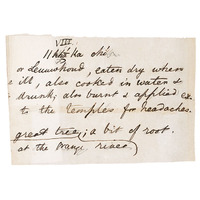 VIII
or Leeuwhond, eaten dry when
ill, also cooked in water &
drunk; also burnt & applied
to the temples for headaches.
great tree; a bit of root.
at the Orange river